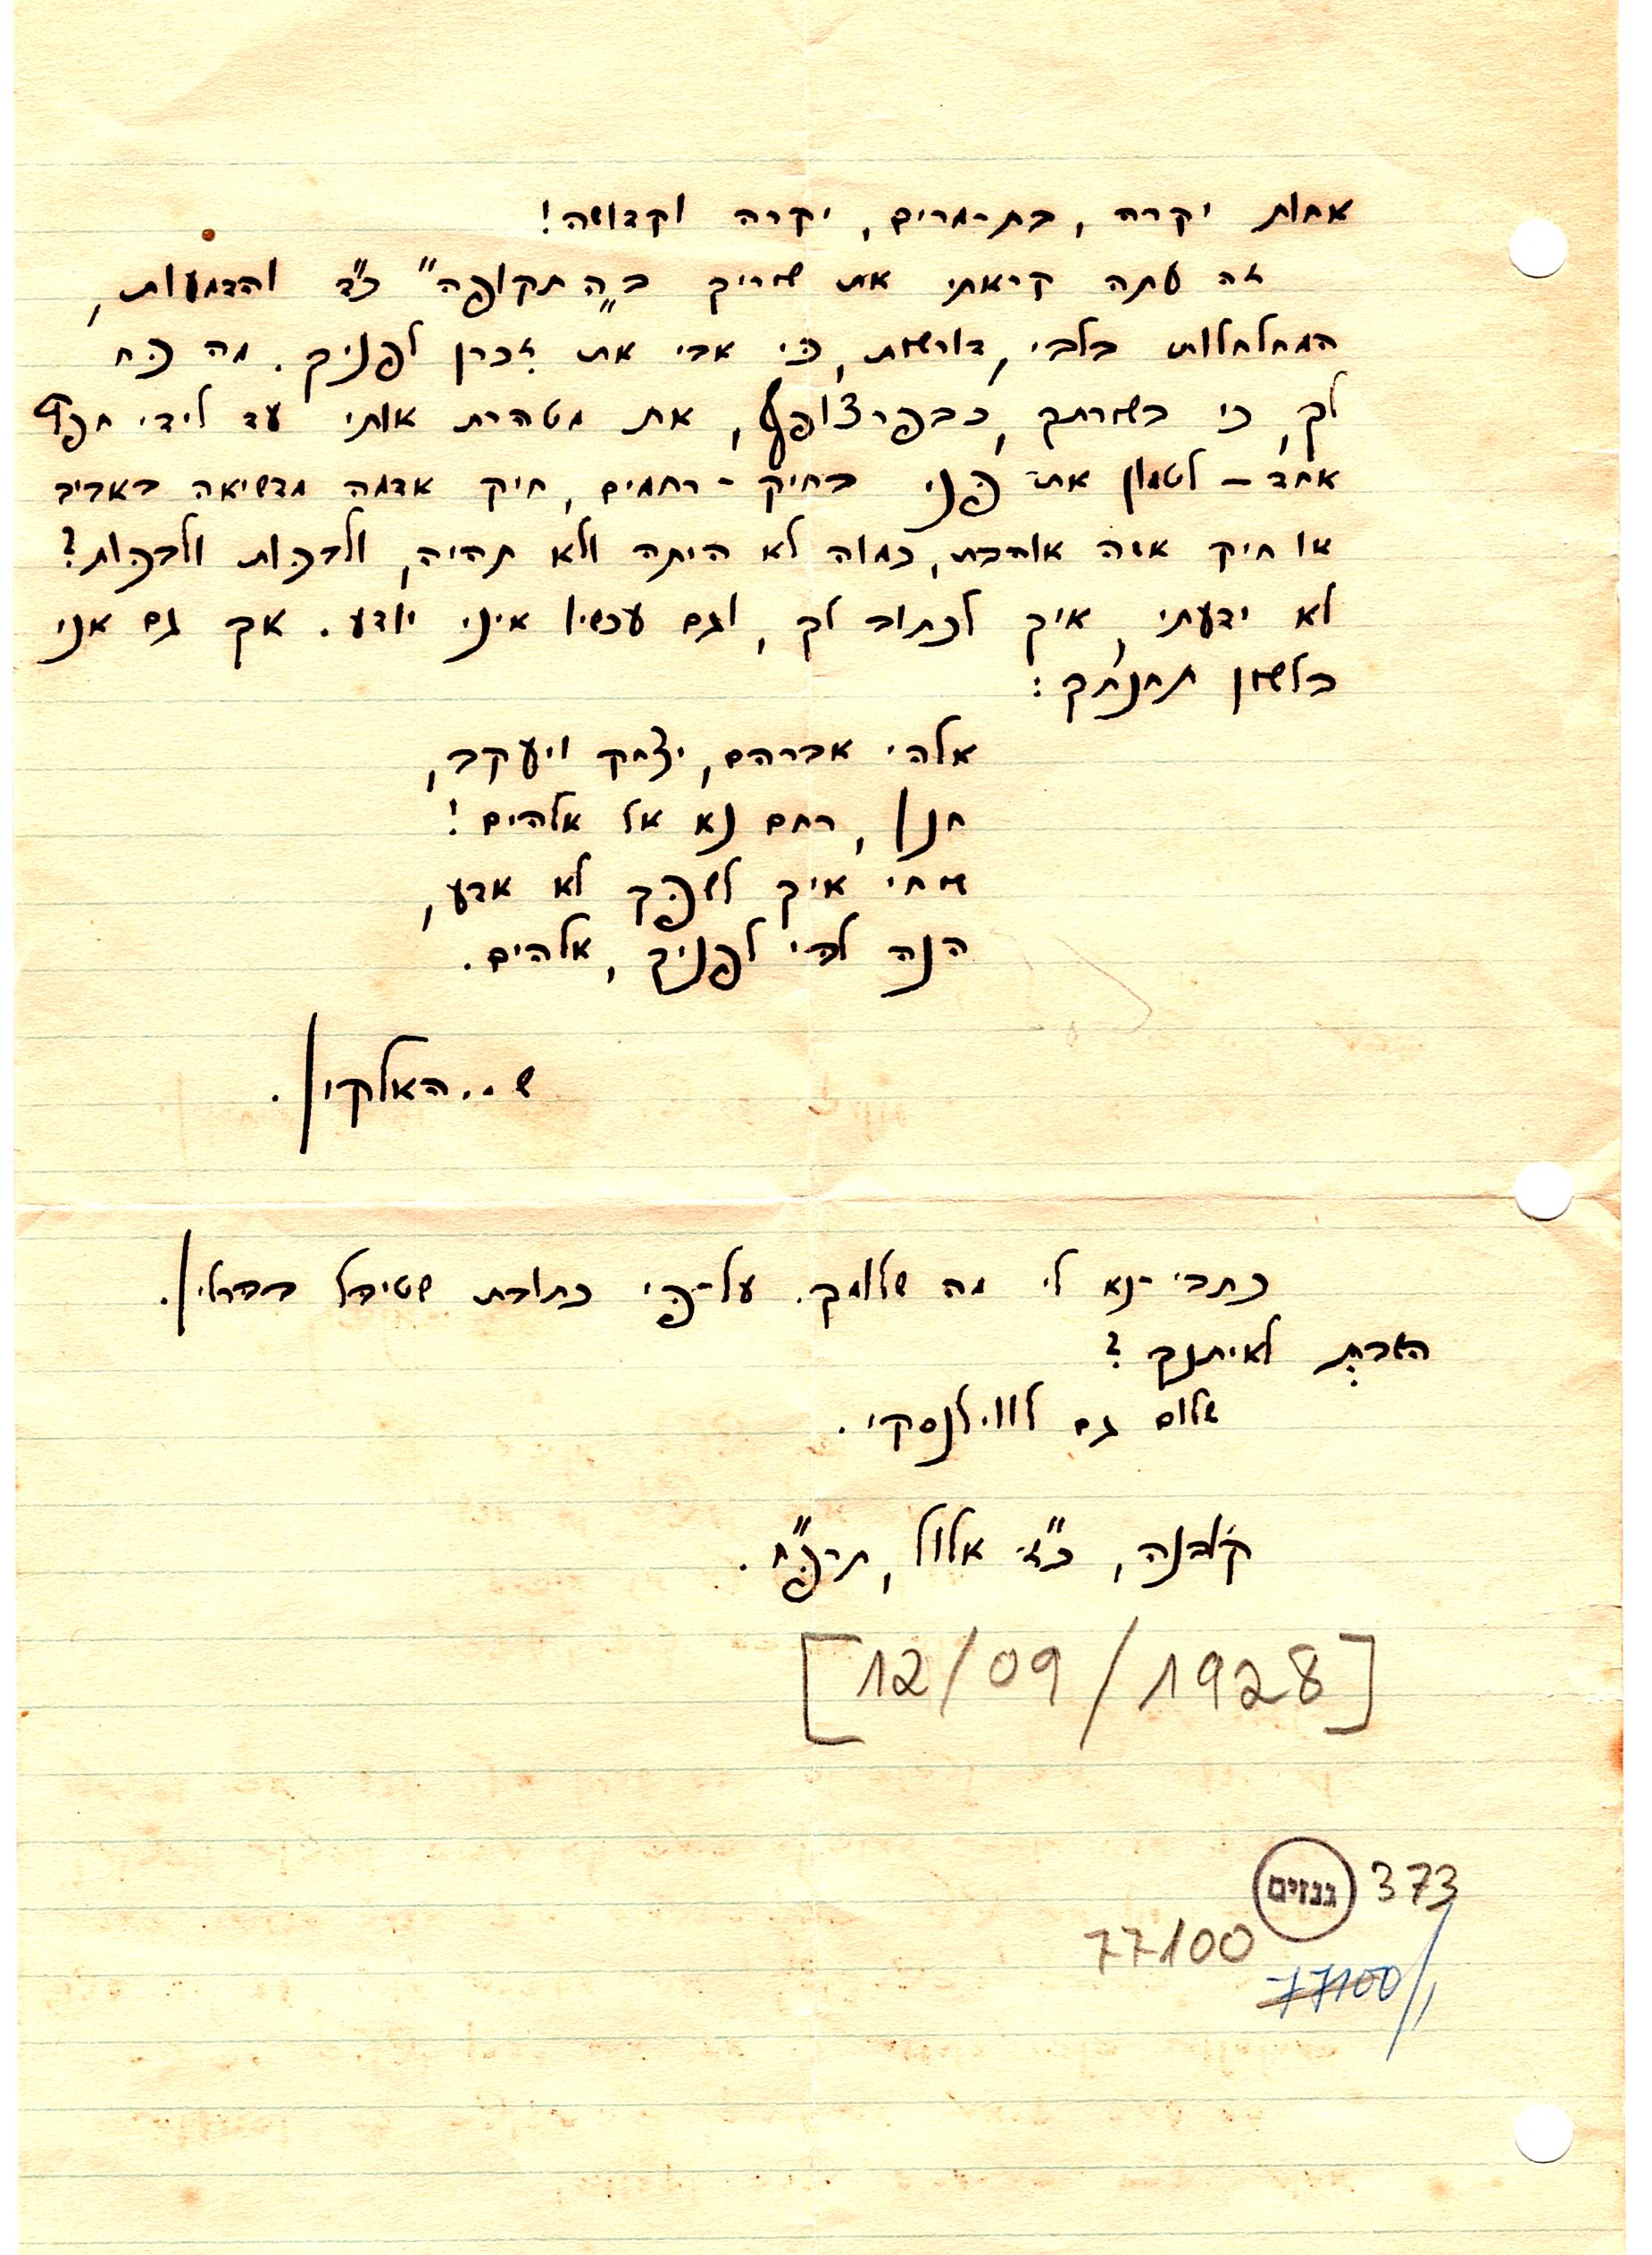 אחות יקרה, בת-מרים, יקרה וקדושה!
זה עתה קראתי את שיריך ב„התקופה" כ"ד והדמעות,
המחלחלות בלבי, דורשות, כי אביא את זכרן לפניך. מה כּח
לך, כי בשירתך, כבפרצופך, את מטהרת אותי עד לידי חפץ
אחד – לטמון את פּני בחיק-רחמים, חיק אדמה מדשיאה באביב
או חיק אשה אוהבת, כמוה לא היתה ולא תהיה, ולבכּות ולבכּות?
לא ידעתי, איך לכתוב לך, וגם עכשיו איני יודע. אך גם אני
כלשון תחנתך:
אלהי אברהם, יצחק ויעקב,
חנון, רחם נא אל אלהים!
שיחי איך לשפּך לא אדע,
הנה לבי לפניך, אלהים.
ש.. האלקין.
כתבי-נא לי מה שלומך. על-פּי כתובת שטיבל בברלין.
הזכית לאיתנך?
שלום גם לווילנסקי.
קובנה, כ"ז אלול, תרפּ"ח.
[12/09/1928]
גנזים 373
77100
77100/1